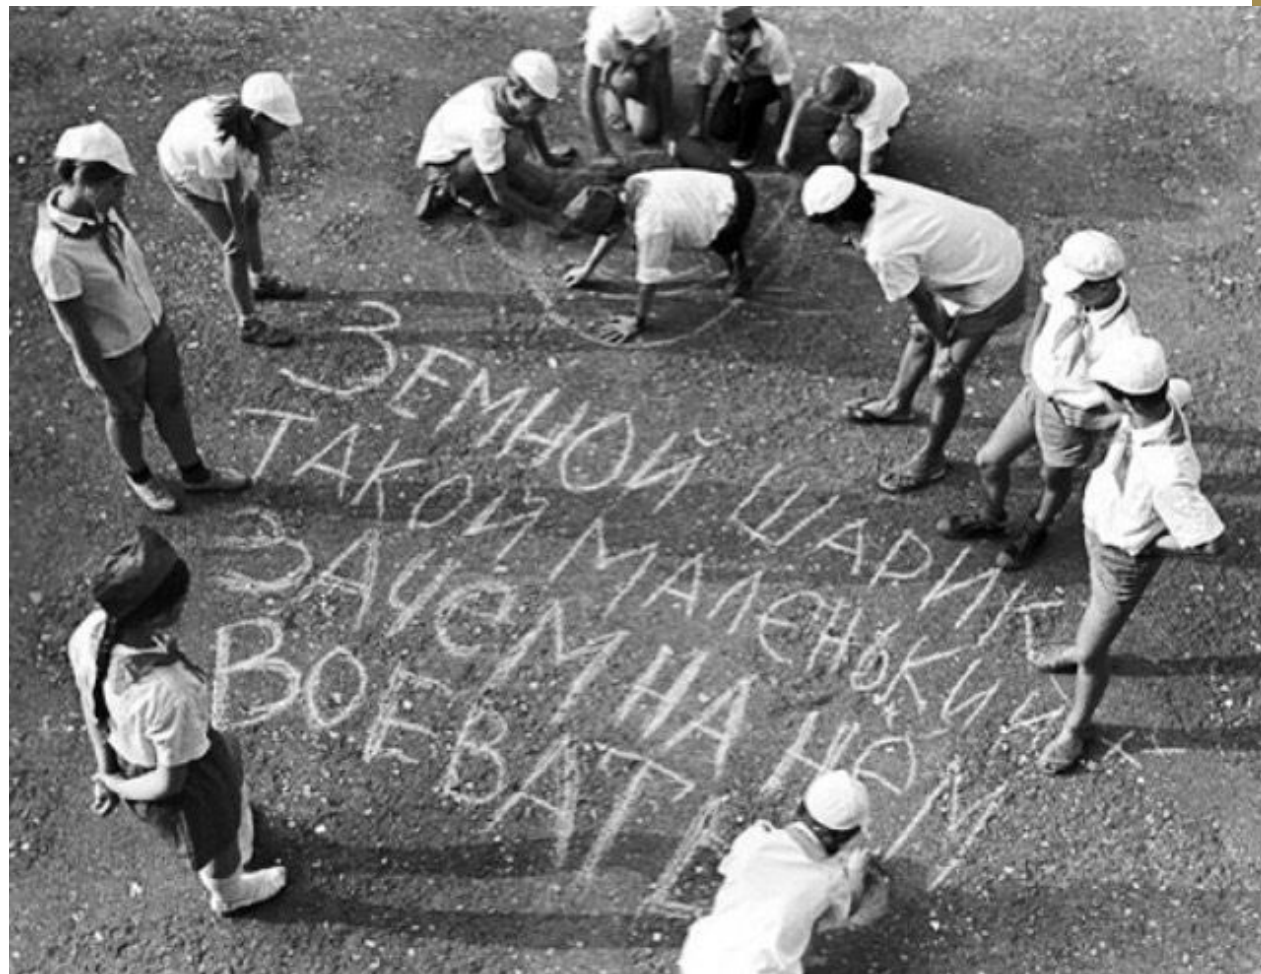 ЗЕМНОЙ ШАРИК
ТАКОЙ МАЛЕНЬКИЙ
ЗАЧЕМ НА НЁМ
ВОЕВАТЬ